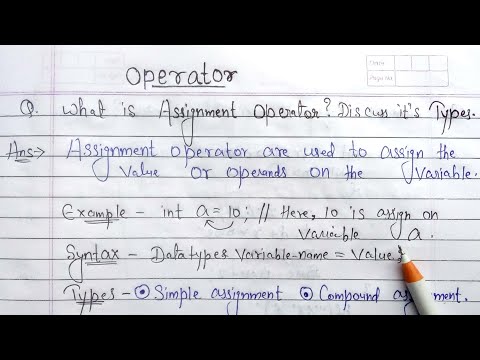 Date
Page No.
Operator
Q. What is Assignment Operator? Discuss it's Types.
Ans:-> Assignment operator are used to assign the
value or operands on the variable.
Example - int a = 10; // Here, 10 is assign on
variable a.
Syntax - Datatypes variable-name = value;
Types - ⊙ Simple assignment ⊙ Compound assignment.